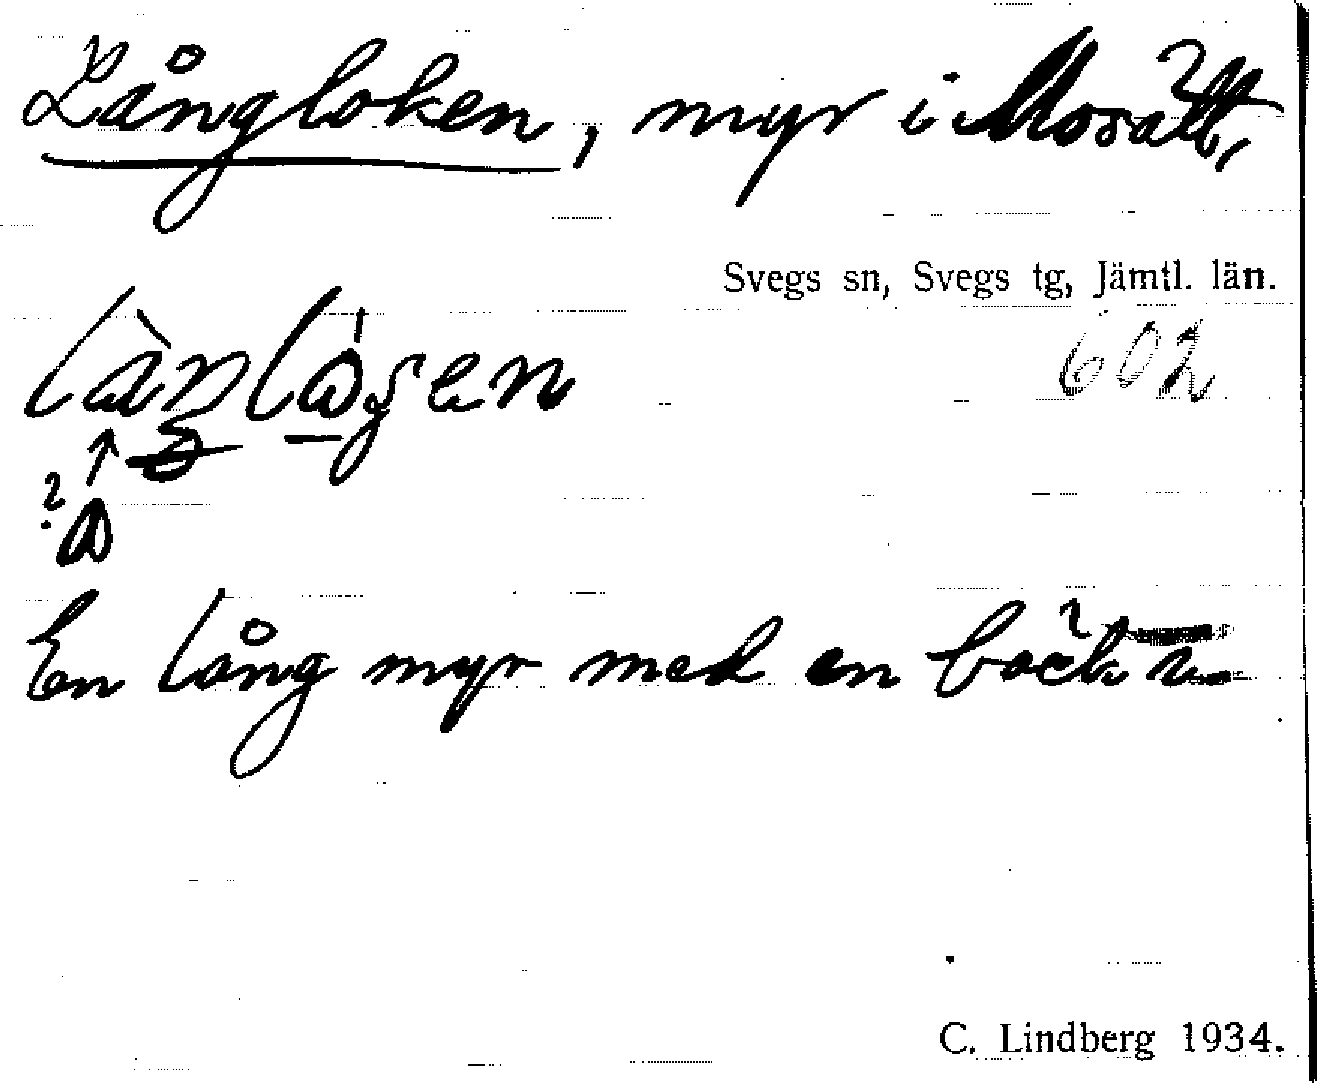 Långloken, myr i Morätt,
Svegs sn, Svegs tg, Jämtl. län.
602
En lång myr med en bäck i
C. Lindberg 1934.